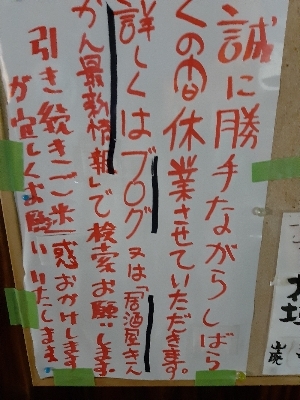 誠に勝手ながらしばら
くの間休業させていただきます。
詳しくはブログ又は「居酒屋きん
かん最新情報」で検索お願いします
引き続きご迷惑おかけします
が宜しくお願いいたします